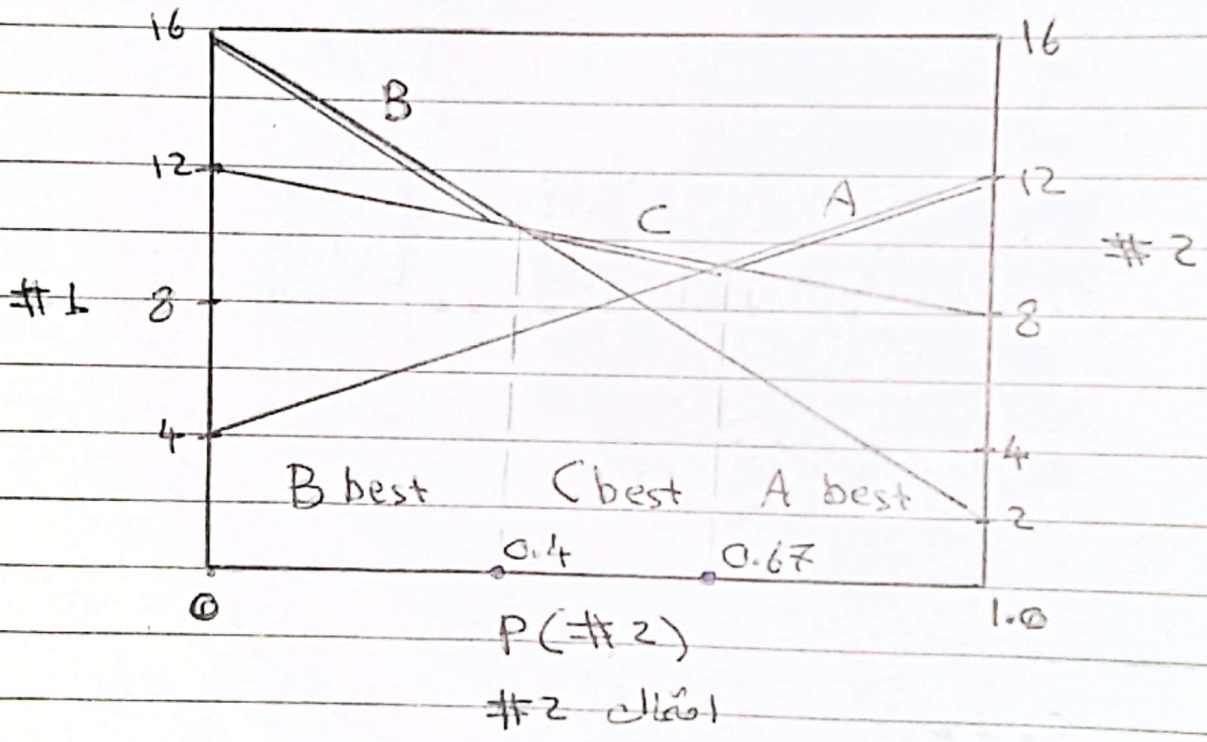 16 16
B
12 12
A
C
#1 8 #2
8
4 4
B best C best A best
2
0.4 0.67
0 1.0
P(#2)
احتمال #2